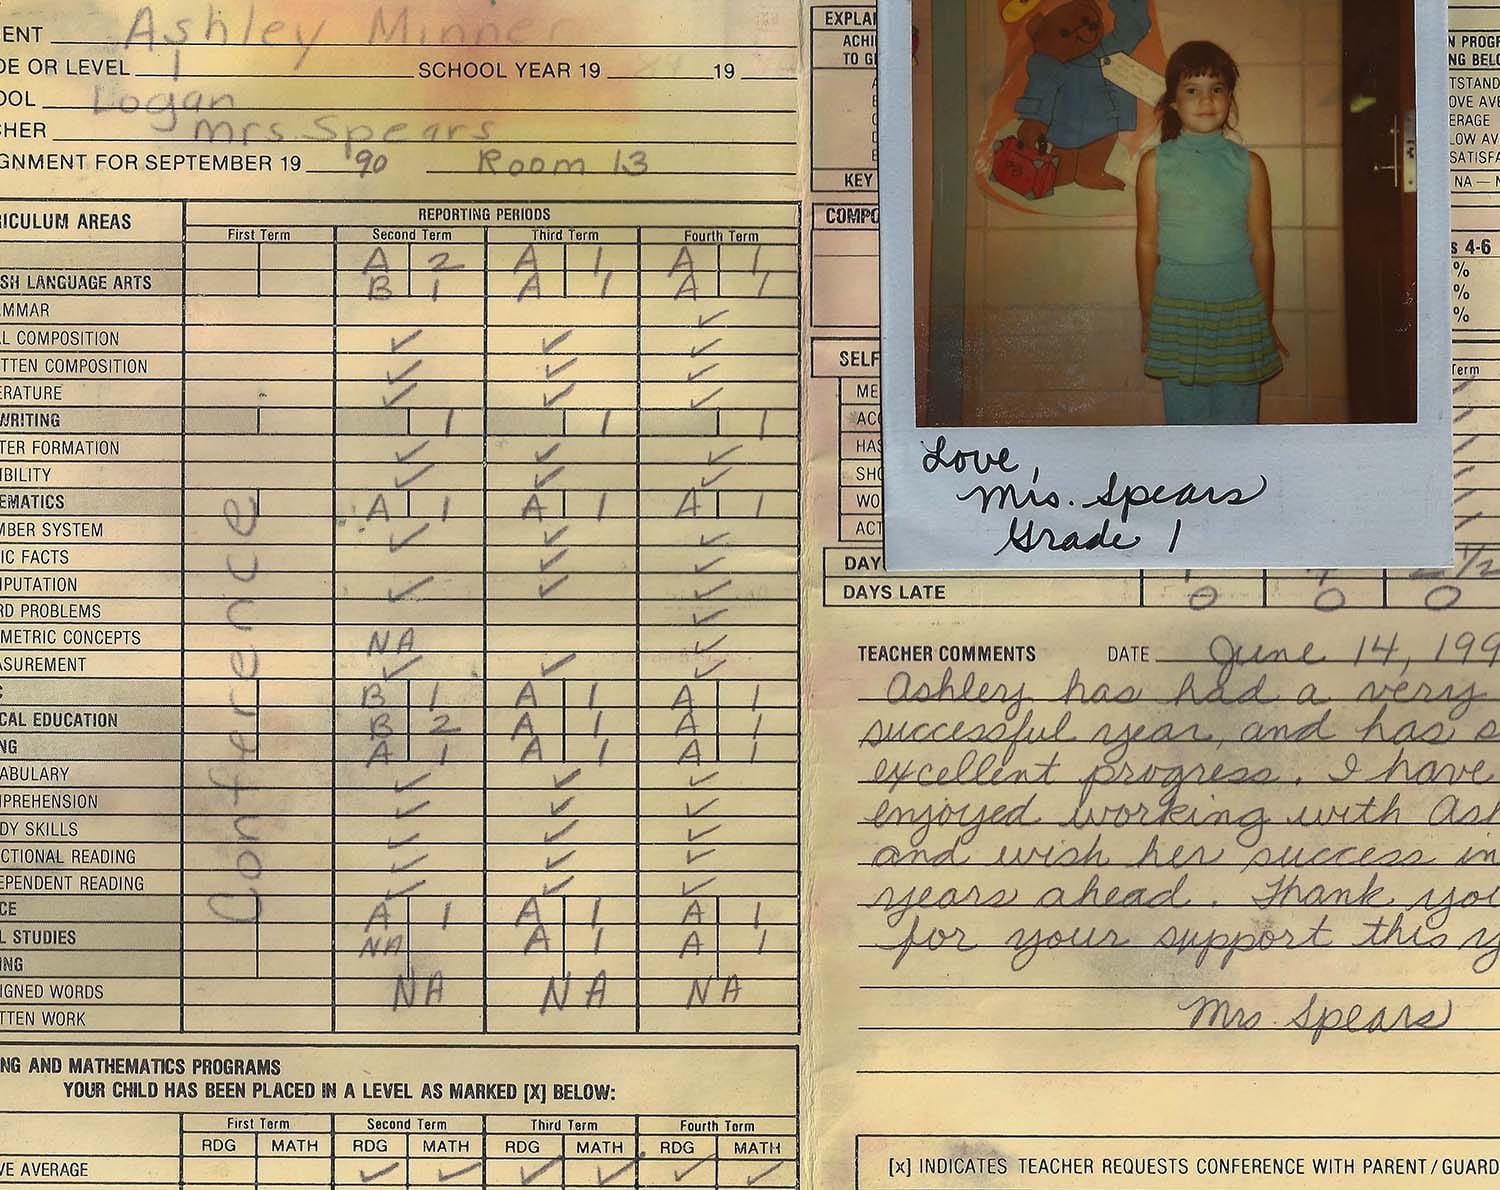 ENT Ashley Minner
DE OR LEVEL 1 SCHOOL YEAR 19 19
OOL Logan
CHER Mrs. Spears
GNMENT FOR SEPTEMBER 19 '90 Room 13
RICULUM AREAS REPORTING PERIODS
First Term Second Term Third Term Fourth Term
A 2 A 1 A 1
SH LANGUAGE ARTS B 1 A 1 A 1
MMAR ✓
L COMPOSITION ✓ ✓ ✓
TTEN COMPOSITION ✓ ✓ ✓
ERATURE ✓ ✓ ✓
WRITING 1 1 1
TER FORMATION ✓ ✓ ✓
IBILITY ✓ ✓ ✓
EMATICS A 1 A 1 A 1
MBER SYSTEM ✓ ✓ ✓
IC FACTS ✓ ✓
PUTATION ✓ ✓ ✓
RD PROBLEMS ✓
METRIC CONCEPTS NA ✓
SUREMENT ✓ ✓ ✓
C B 1 A 1 A 1
CAL EDUCATION B 2 A 1 A 1
NG A 1 A 1 A 1
ABULARY ✓ ✓ ✓
MPREHENSION ✓ ✓ ✓
DY SKILLS ✓ ✓ ✓
CTIONAL READING ✓ ✓ ✓
EPENDENT READING ✓ ✓ ✓
CE A 1 A 1 A 1
L STUDIES NA A 1 A 1
ING
IGNED WORDS NA NA NA
TTEN WORK
Conference
NG AND MATHEMATICS PROGRAMS
YOUR CHILD HAS BEEN PLACED IN A LEVEL AS MARKED [X] BELOW:
First Term Second Term Third Term Fourth Term
RDG MATH RDG MATH RDG MATH RDG MATH
VE AVERAGE ✓ ✓ ✓ ✓ ✓ ✓
EXPLA
ACHI
TO G
KEY
COMPO
SELF
ME
ACC
HAS
SHO
WO
ACT
N PROGR
NG BELO
TSTAND
OVE AVE
ERAGE
LOW AV
SATISFA
NA — N
s 4-6
%
%
%
Term
Love,
Mrs. Spears
Grade 1
DAY
DAYS LATE 0 0 0
TEACHER COMMENTS DATE June 14, 199
Ashley has had a very
successful year, and has s
excellent progress. I have
enjoyed working with Ash
and wish her success in
years ahead. Thank you
for your support this y
Mrs. Spears
[x] INDICATES TEACHER REQUESTS CONFERENCE WITH PARENT / GUARD